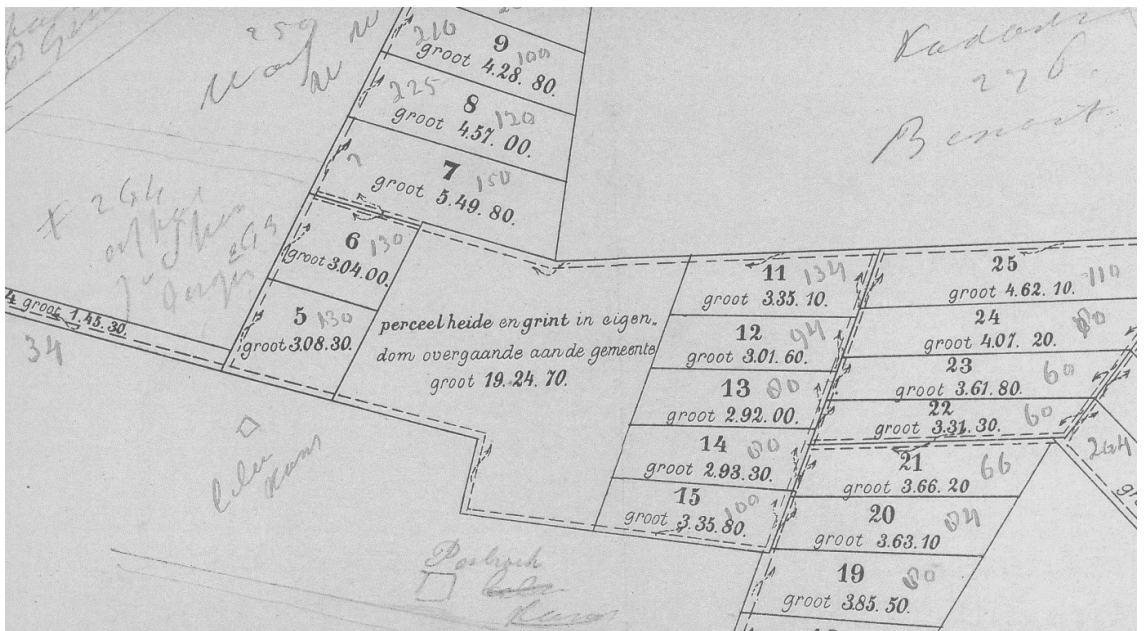 250
210
9
100
groot 4.28. 80.
225
8
120
groot 4.57. 00.
7
150
groot 5.49. 80.
Kadaster
276.
264
263
6
130
groot 3.04.00.
5
130
groot 3.08.30.
4 groot 1.45.30.
34
perceel heide en grint in eigen-
dom overgaande aan de gemeente
groot 19.24. 70.
11
134
groot 3.35. 10.
12
94
groot 3.01. 60.
13
80
groot 2.92. 00.
14
80
groot 2.93. 30.
15
100
groot 3.35. 80.
25
110
groot 4.62. 10.
24
80
groot 4.07. 20.
23
60
groot 3.61. 80.
22
60
groot 3.31. 30.
21
66
groot 3.66. 20
20
84
groot 3.63. 10
19
80
groot 3.85. 50.
264